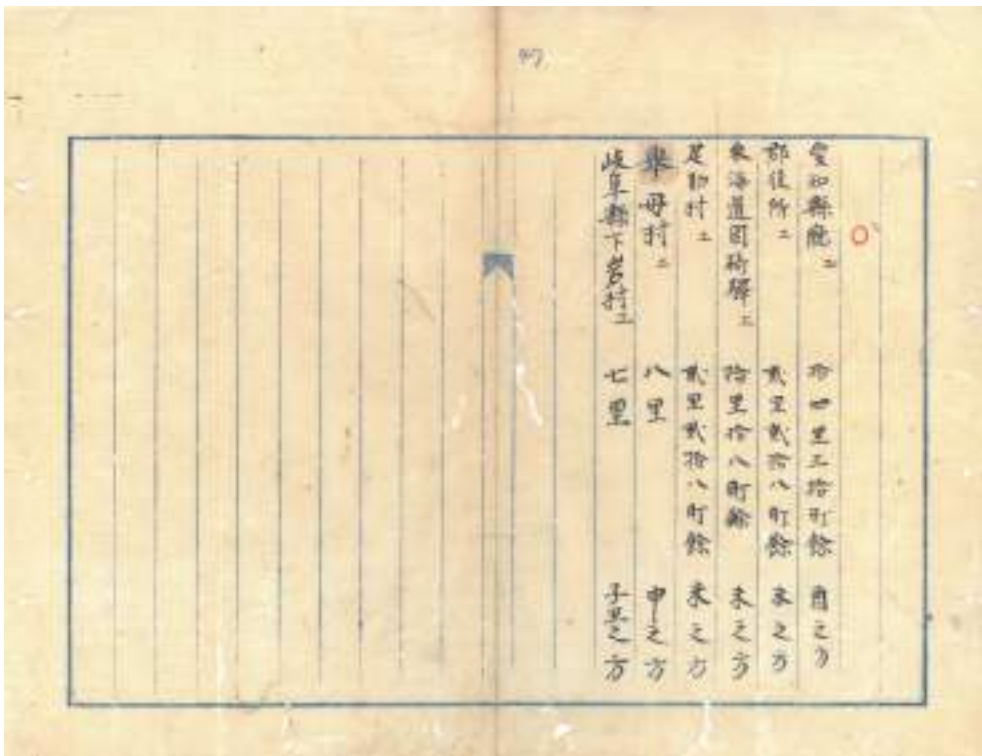 47
愛知縣廳エ 拾四里三拾町餘 酉之方
郡役所エ 貳里貳拾八町餘 未之方
東海道岡崎驛エ 拾里拾八町餘 未之方
足助村エ 貳里貳拾八町餘 未之方
擧母村エ 八里 申之方
岐阜縣下岩村エ 七里 子丑之方